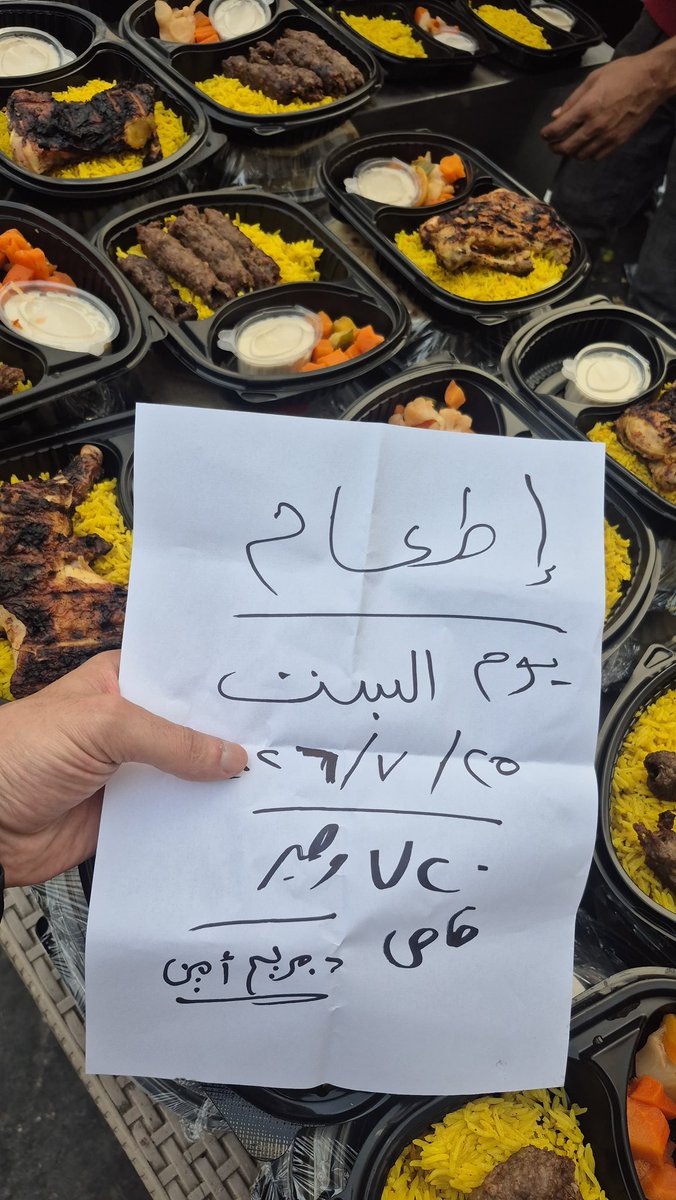 إطعام
يوم السبت
٢٥/٧/٠٢٦
٧٢٠ وجبه
خاص
د. مريم أمين